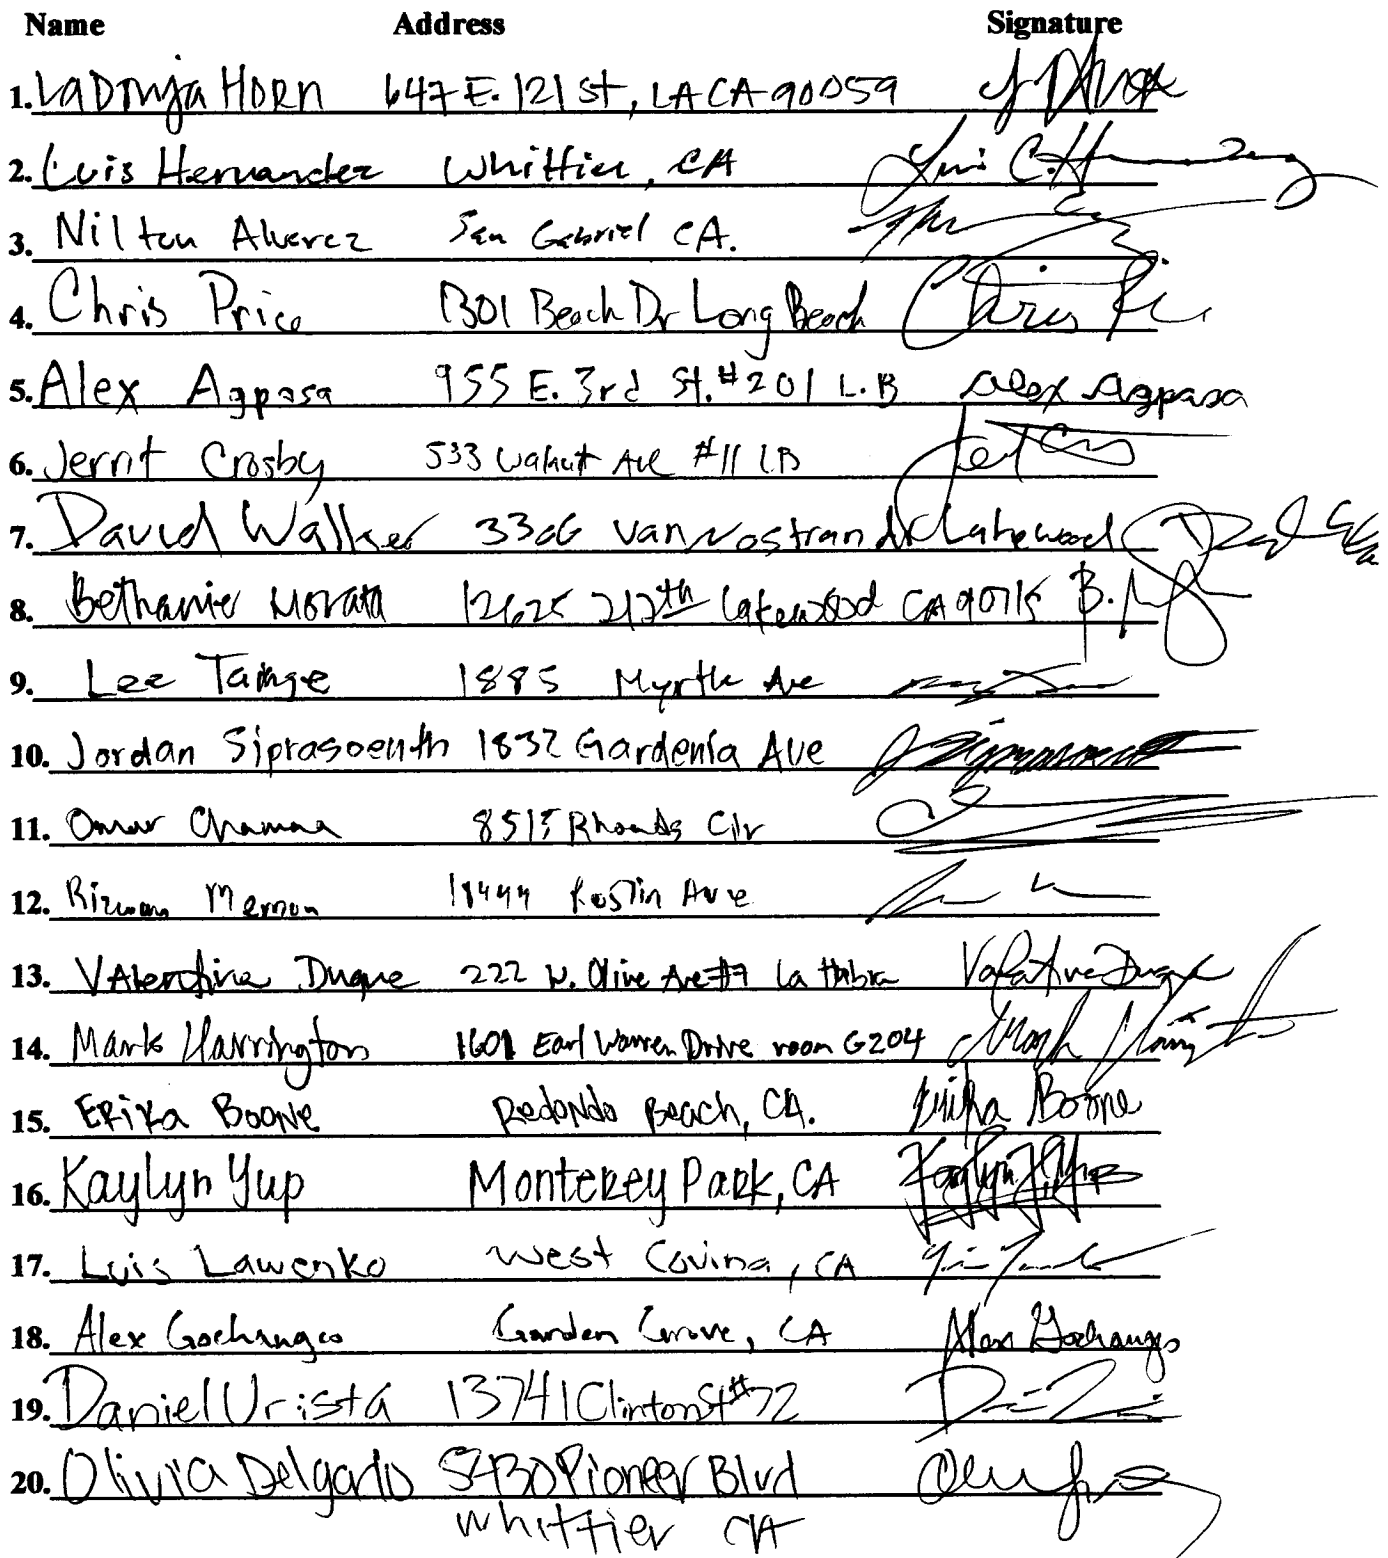 Name Address Signature
1. LaDonja Horn 647 E. 121 St, LA CA 90059
2. Luis Hernandez Whittier, CA Luis C. Hernandez
3. Nilton Alverez San Gabriel CA.
4. Chris Price 1301 Beach Dr Long Beach Chris
5. Alex Agpasa 955 E. 3rd St. #201 L.B Alex Agpasa
6. Jerrit Crosby 533 Walnut Ave #11 LB
7. David Walker 3306 Van Nostran Dr Lakewood
8. Bethanie Morata 12625 212th Lakewood CA 90715 B.
9. Lee Tainge 1885 Myrtle Ave
10. Jordan Siprasoeuth 1832 Gardenia Ave
11. Omar Chamaa 8515 Rhoads Cir
12. Rizwan Memon Ave
13. Valentina Duque 222 N. Olive Ave #7 La Habra Valentina Duque
14. Mark Harrington 1601 Earl Warren Drive room G204 Mark
15. Erika Boone Redondo Beach, CA. Erika Boone
16. Kaylyn Yup Monterey Park, CA Kaylyn J. Yup
17. Luis Lawenko West Covina, CA
18. Alex Gochangco Garden Grove, CA Alex Gochangco
19. Daniel Urista 13741 Clinton St #72
20. Olivia Delgado 5430 Pioneer Blvd
Whittier CA